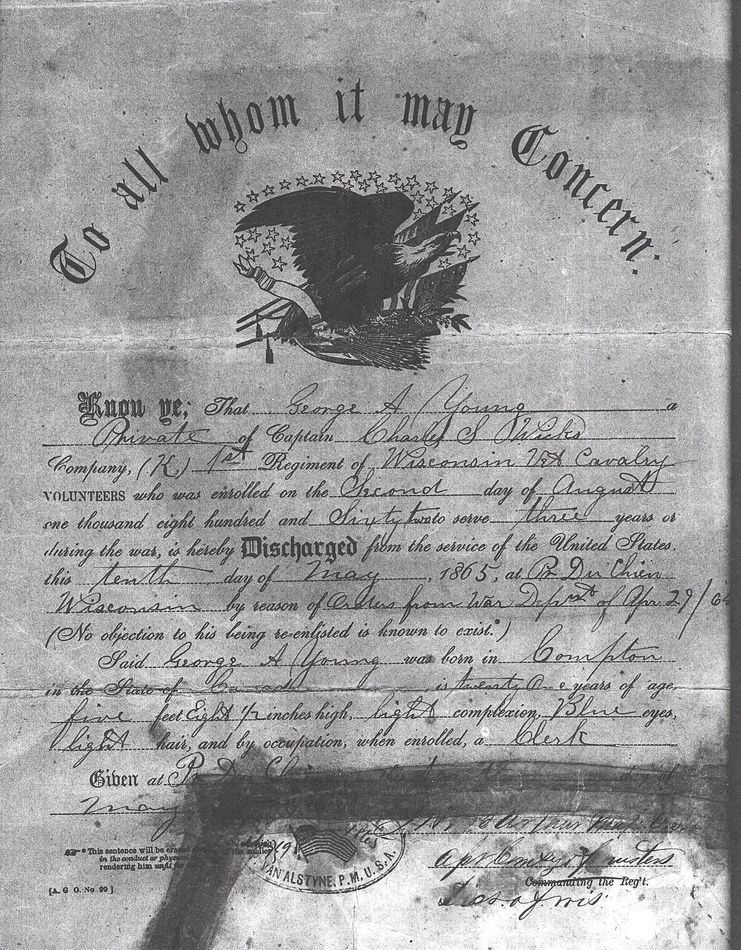 To all whom it may Concern:
Know ye, That George A Young a
Private of Captain Charles S Wicks
Company, (K) 1st Regiment of Wisconsin Vet Cavalry
VOLUNTEERS who was enrolled on the Second day of August
one thousand eight hundred and Sixty two to serve three years or
during the war, is hereby Discharged from the service of the United States,
this tenth day of May, 1865, at Pr Du Chien
Wisconsin by reason of Orders from War Dept of Apr 29/65
(No objection to his being re-enlisted is known to exist.*)
Said George A Young was born in Compton
in the State of Canada is twenty One years of age,
five feet Eight 1/2 inches high, light complexion, Blue eyes,
light hair, and by occupation, when enrolled, a Clerk
Given at Pr Du Chien day of
May
* This sentence will be erased
in the conduct or physical
rendering him unfit for
[A. G. O. No 99.]
VAN ALSTYNE, P. M. U. S. A.
Commanding the Reg't.